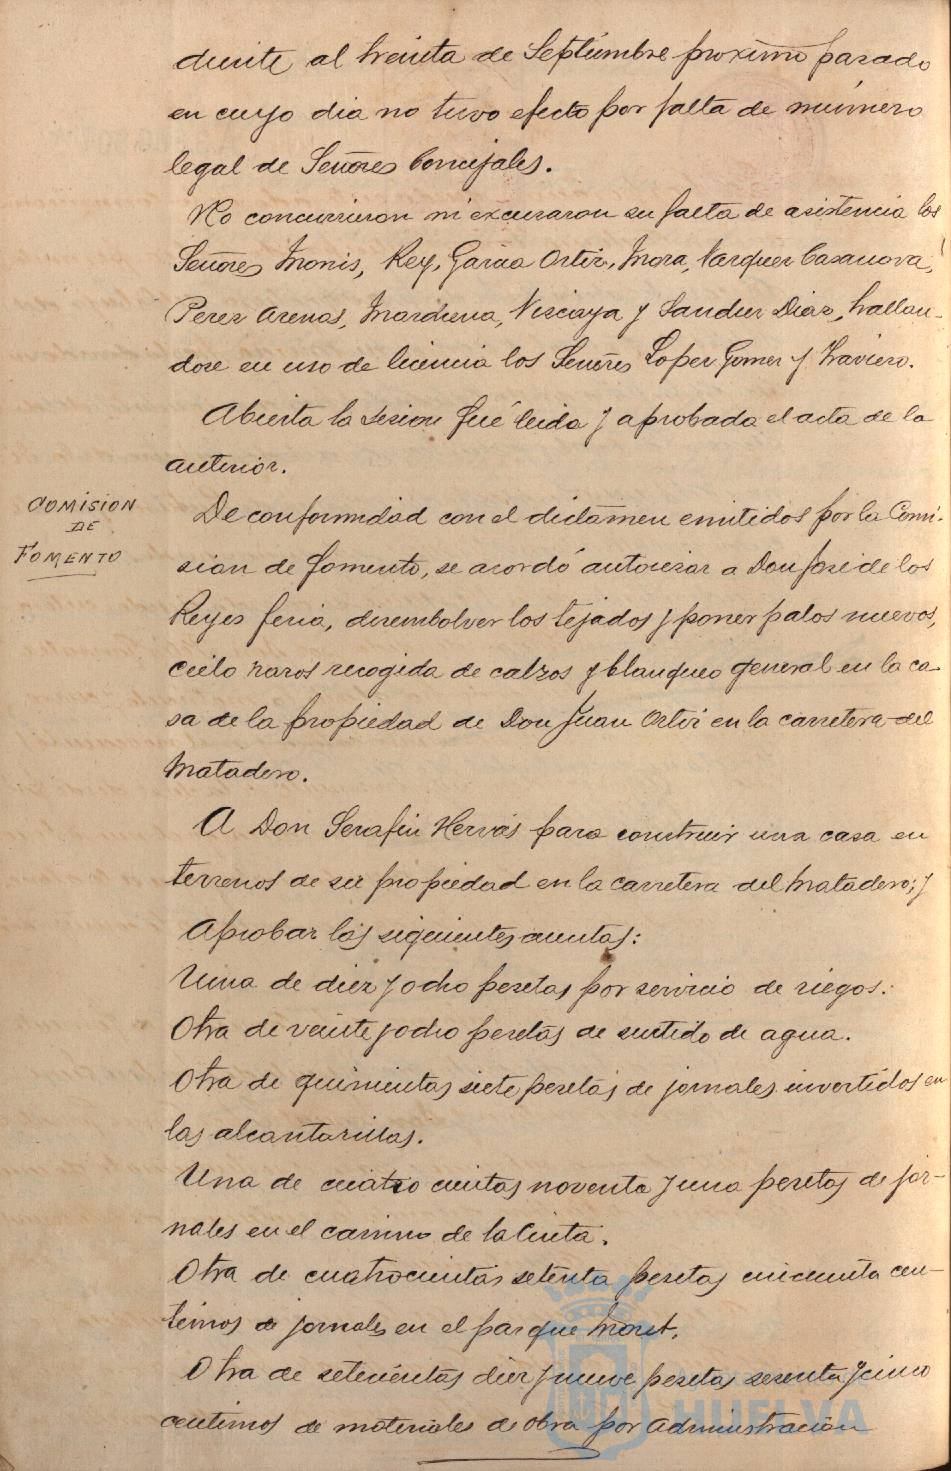 diente al treinta de Septiembre proximo pasado
en cuyo dia no tuvo efecto por falta de número
legal de Señores Concejales.
No concurrieron ni excusaron su falta de asistencia los
Señores Monis, Rey, Garcia Ortiz, Mora, Vazquez Casanova,
Perez Arenas, Marchena, Viscaya y Sanchez Diaz, hallan-
dose en uso de licencia los Señores Lopez Gomez y Traviero.
Abierta la sesion fué leida y aprobada el acta de la
anterior.
COMISION
DE
FOMENTO
De conformidad con el dictámen emitidos por la Comi-
sion de fomento, se acordó autorizar a Don José de los
Reyes feria, desembolver los tejados y poner palos nuevos,
cielo razos recogida de calzos y blanqueo general en la ca-
sa de la propiedad de Don Juan Ortiz en la carretera del
Matadero.
A Don Serafin Hervás para construir una casa en
terrenos de su propiedad en la carretera del Matadero; y
Aprobar las siguientes cuentas:
Una de diez y ocho pesetas por servicio de riegos.
Otra de veinte y ocho pesetas de surtido de agua.
Otra de quinientas siete pesetas de jornales invertidos en
las alcantarillas.
Una de cuatro cientas noventa y una pesetas de jor-
nales en el camino de la Cinta.
Otra de cuatrocientas setenta pesetas cincuenta cen-
timos de jornales en el parque Moret.
Otra de setecientas diez y nueve pesetas sesenta y cinco
centimos de materiales de obra por administración
HUELVA